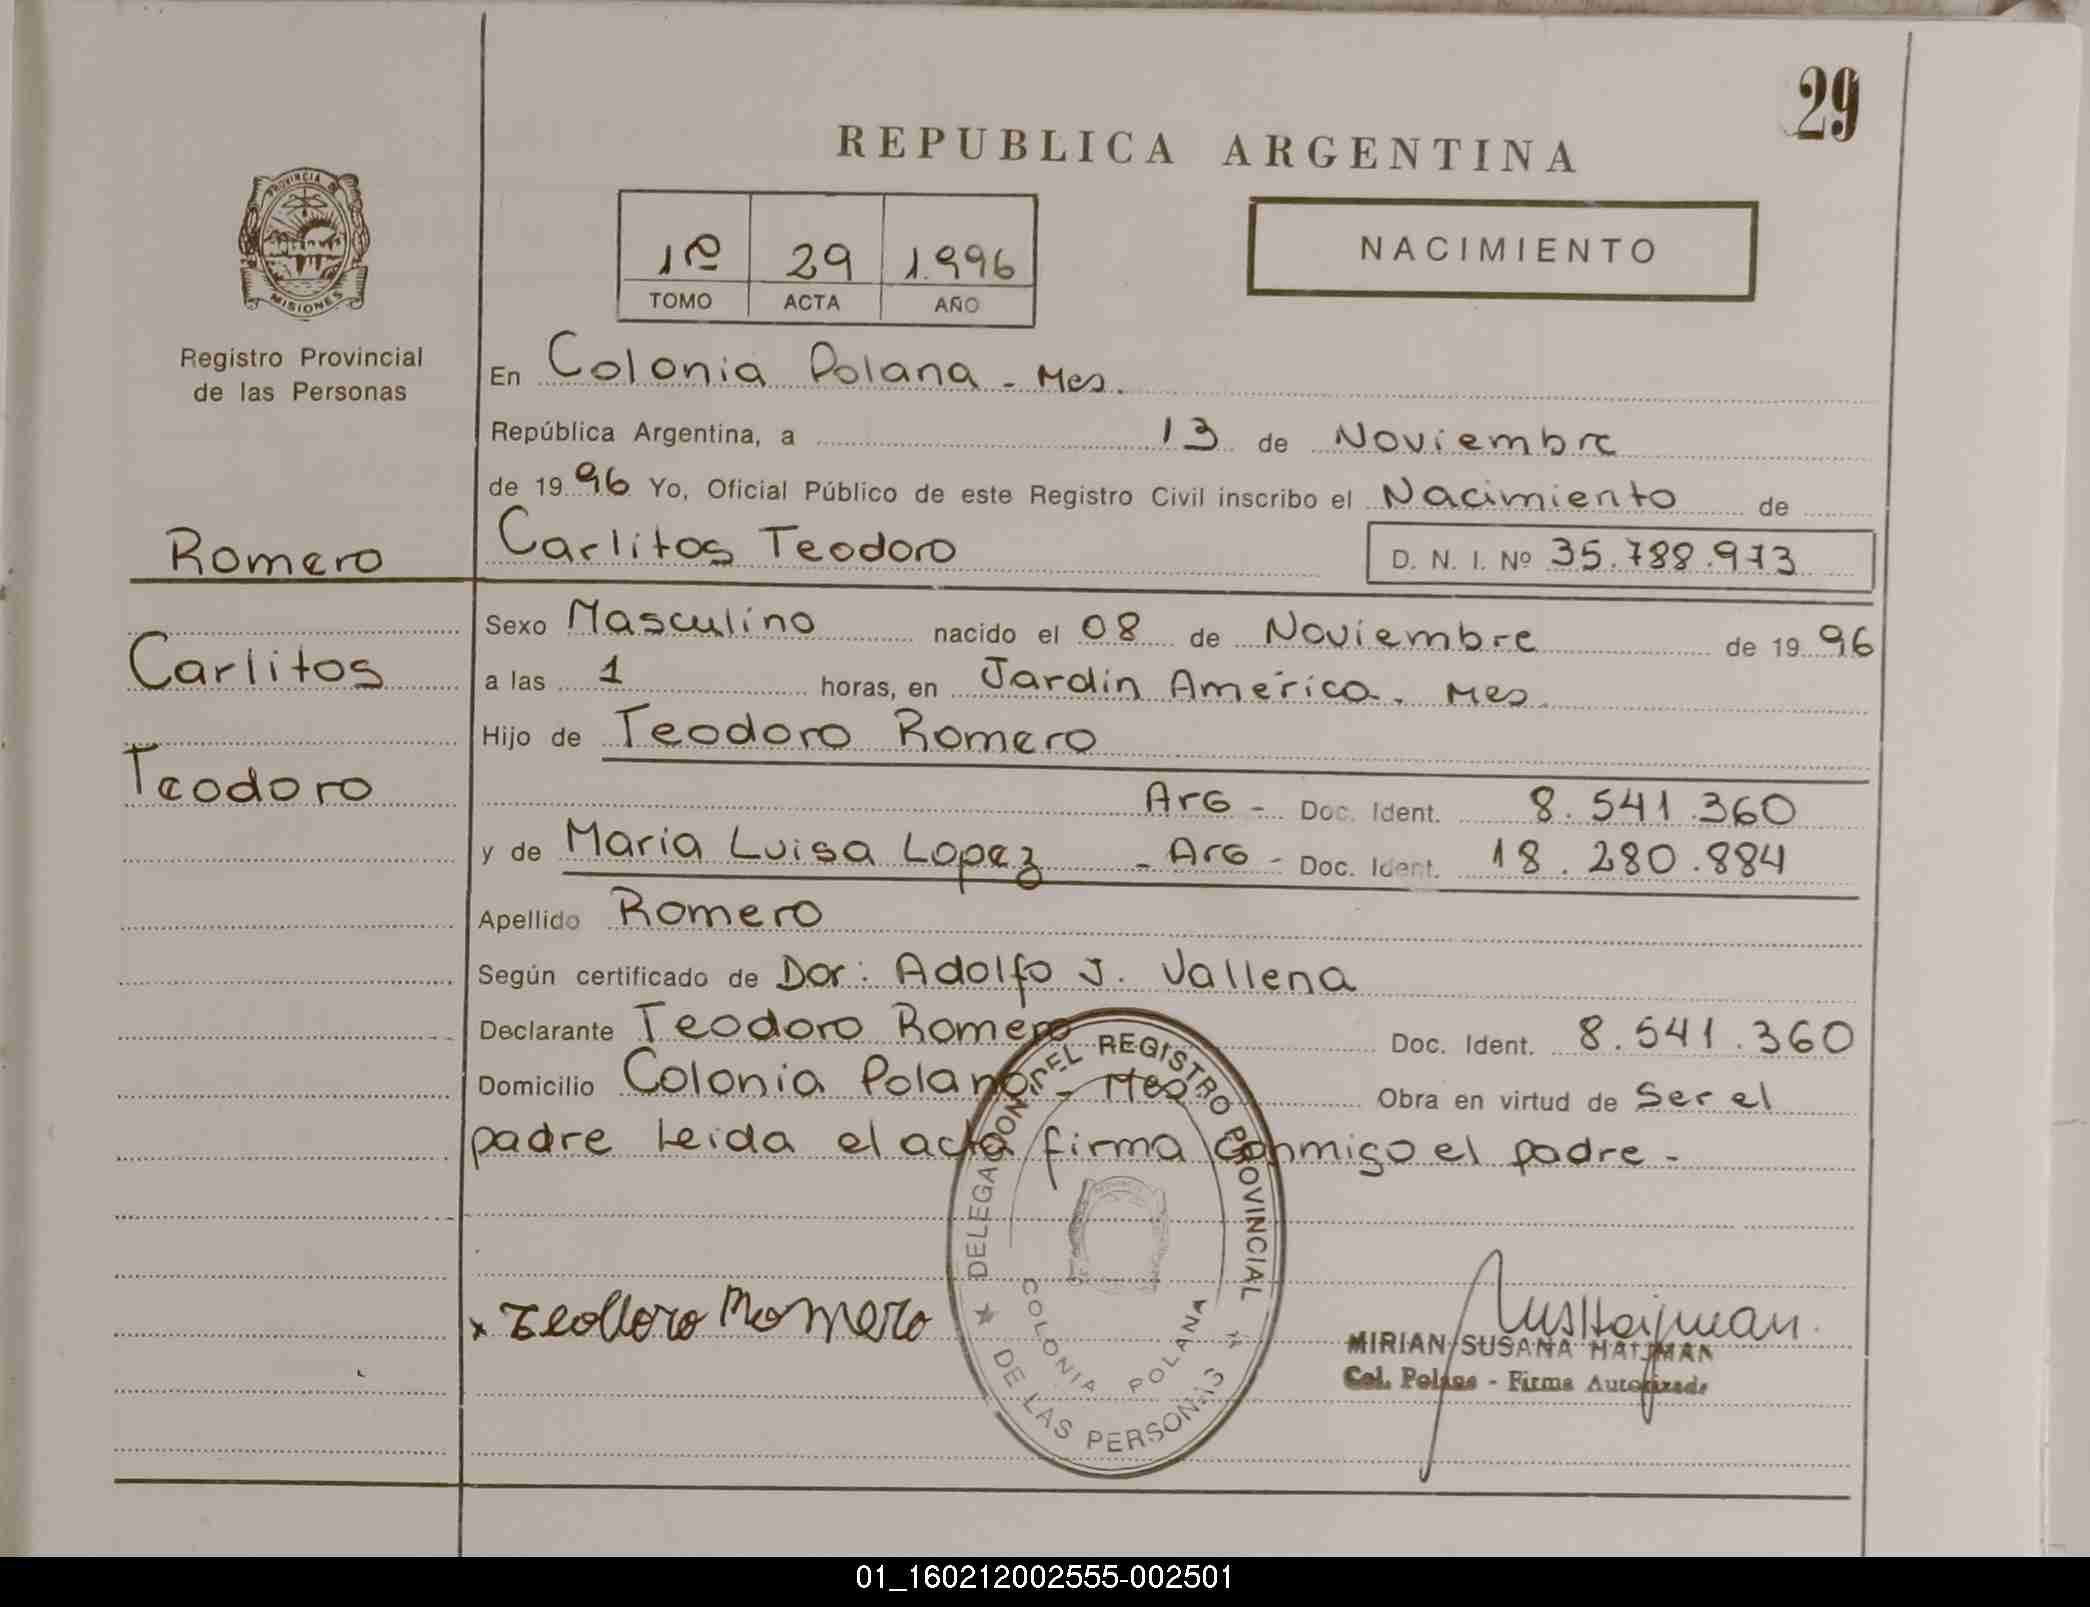 29
REPUBLICA ARGENTINA
PROVINCIA DE
MISIONES
1º 29 1.996
TOMO ACTA AÑO
NACIMIENTO
Registro Provincial
de las Personas
En Colonia Polana - Mes.
República Argentina, a 13 de Noviembre
de 1996 Yo, Oficial Público de este Registro Civil inscribo el Nacimiento de
Romero
Carlitos Teodoro D. N. I. Nº 35.788.973
Sexo Masculino nacido el 08 de Noviembre de 1996
Carlitos
a las 1 horas, en Jardin América. Mes.
Hijo de Teodoro Romero
Teodoro
Arg - Doc. Ident. 8.541.360
y de Maria Luisa Lopez - Arg - Doc. Ident. 18.280.884
Apellido Romero
Según certificado de Dor: Adolfo J. Vallena
Declarante Teodoro Romero Doc. Ident. 8.541.360
Domicilio Colonia Polana - Mes Obra en virtud de Ser el
padre Leida el acta firma conmigo el padre -
DELEGACION DEL REGISTRO PROVINCIAL
DE LAS PERSONAS
COLONIA POLANA
x Teodoro Romero
MIRIAN SUSANA HAIJMAN
Col. Polana - Firma Autorizada
01_160212002555-002501